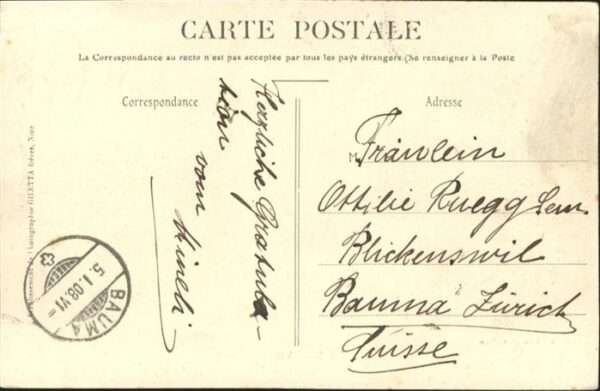 CARTE POSTALE
La Correspondance au recto n'est pas acceptée par tous les pays étrangers (Se renseigner à la Poste
Correspondance
Adresse
Herzliche Gratula-
tion
vom
M
Fräulein
Ottilie Ruegg
Blickenswil
Bauma Zürich
Suisse
GILETTA frères, Nice
BAUMA
5.I.08.VI